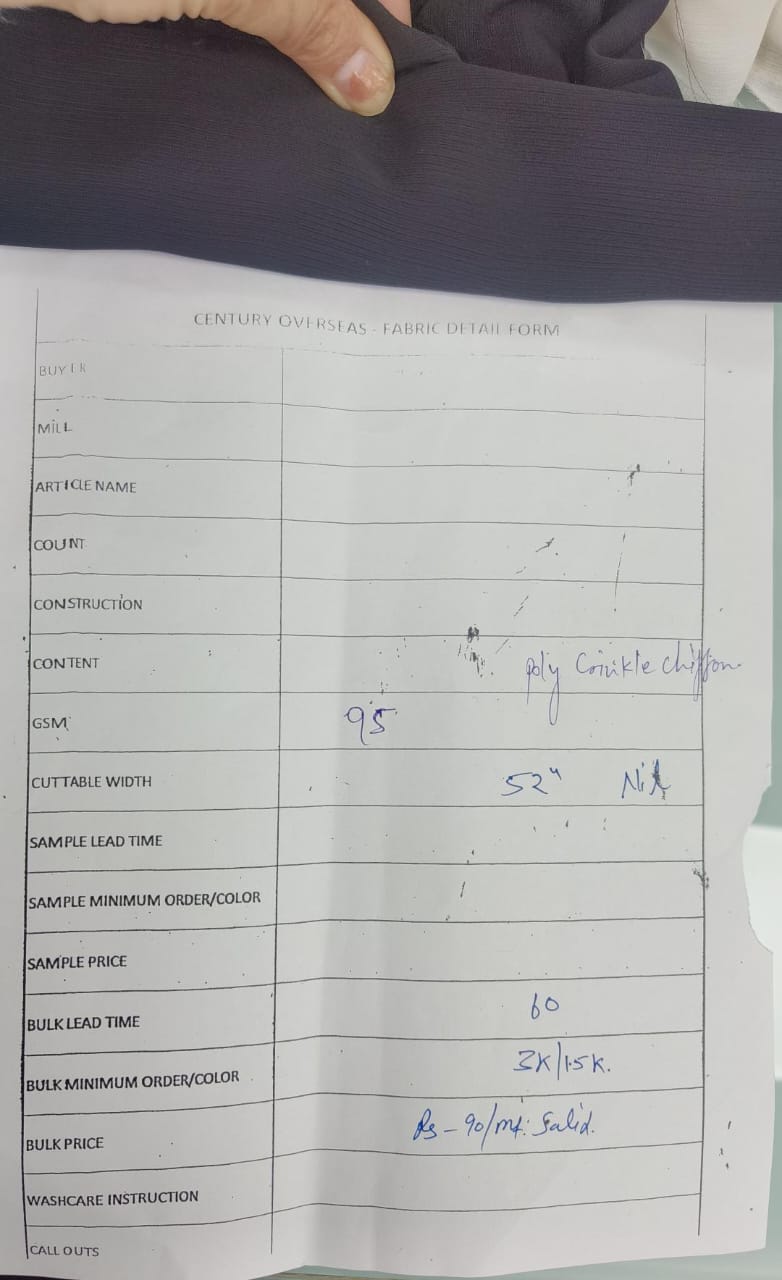 CENTURY OVERSEAS - FABRIC DETAIL FORM
BUYER
MILL
ARTICLE NAME
COUNT
CONSTRUCTION
CONTENT poly Crinkle chiffon
GSM 95
CUTTABLE WIDTH 52" Nil
SAMPLE LEAD TIME
SAMPLE MINIMUM ORDER/COLOR
SAMPLE PRICE
BULK LEAD TIME 60
BULK MINIMUM ORDER/COLOR 3K/1.5K.
BULK PRICE Rs - 90/mt. Salid.
WASHCARE INSTRUCTION
CALL OUTS